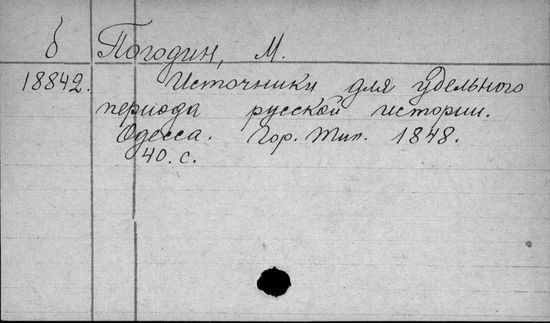 б Погодин, М.
18842. Источники для удельного
периода русской истории.
Одесса. Гор. Тип. 1848.
40. с.